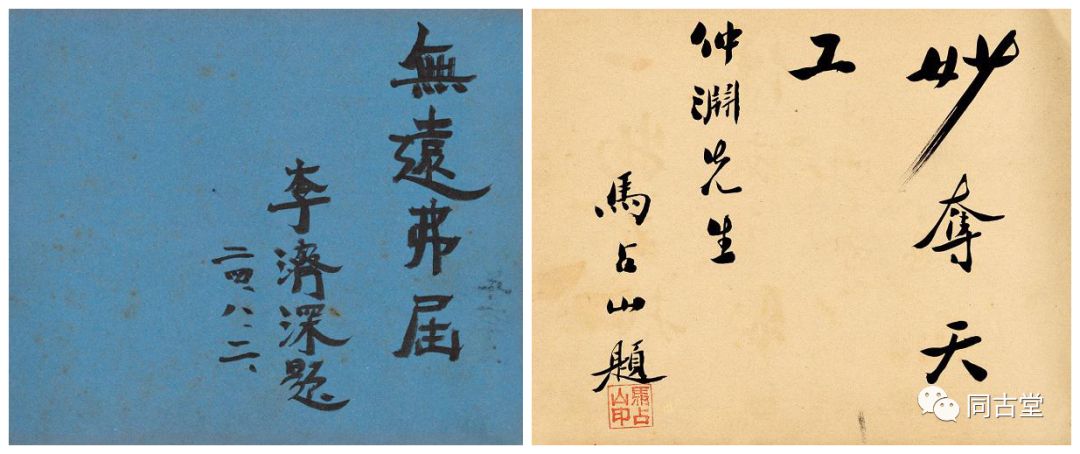 無遠弗屆
李濟深題
二四、八、二、
妙奪天
工
仲淵先生
馬占山題
馬占
山印
同古堂